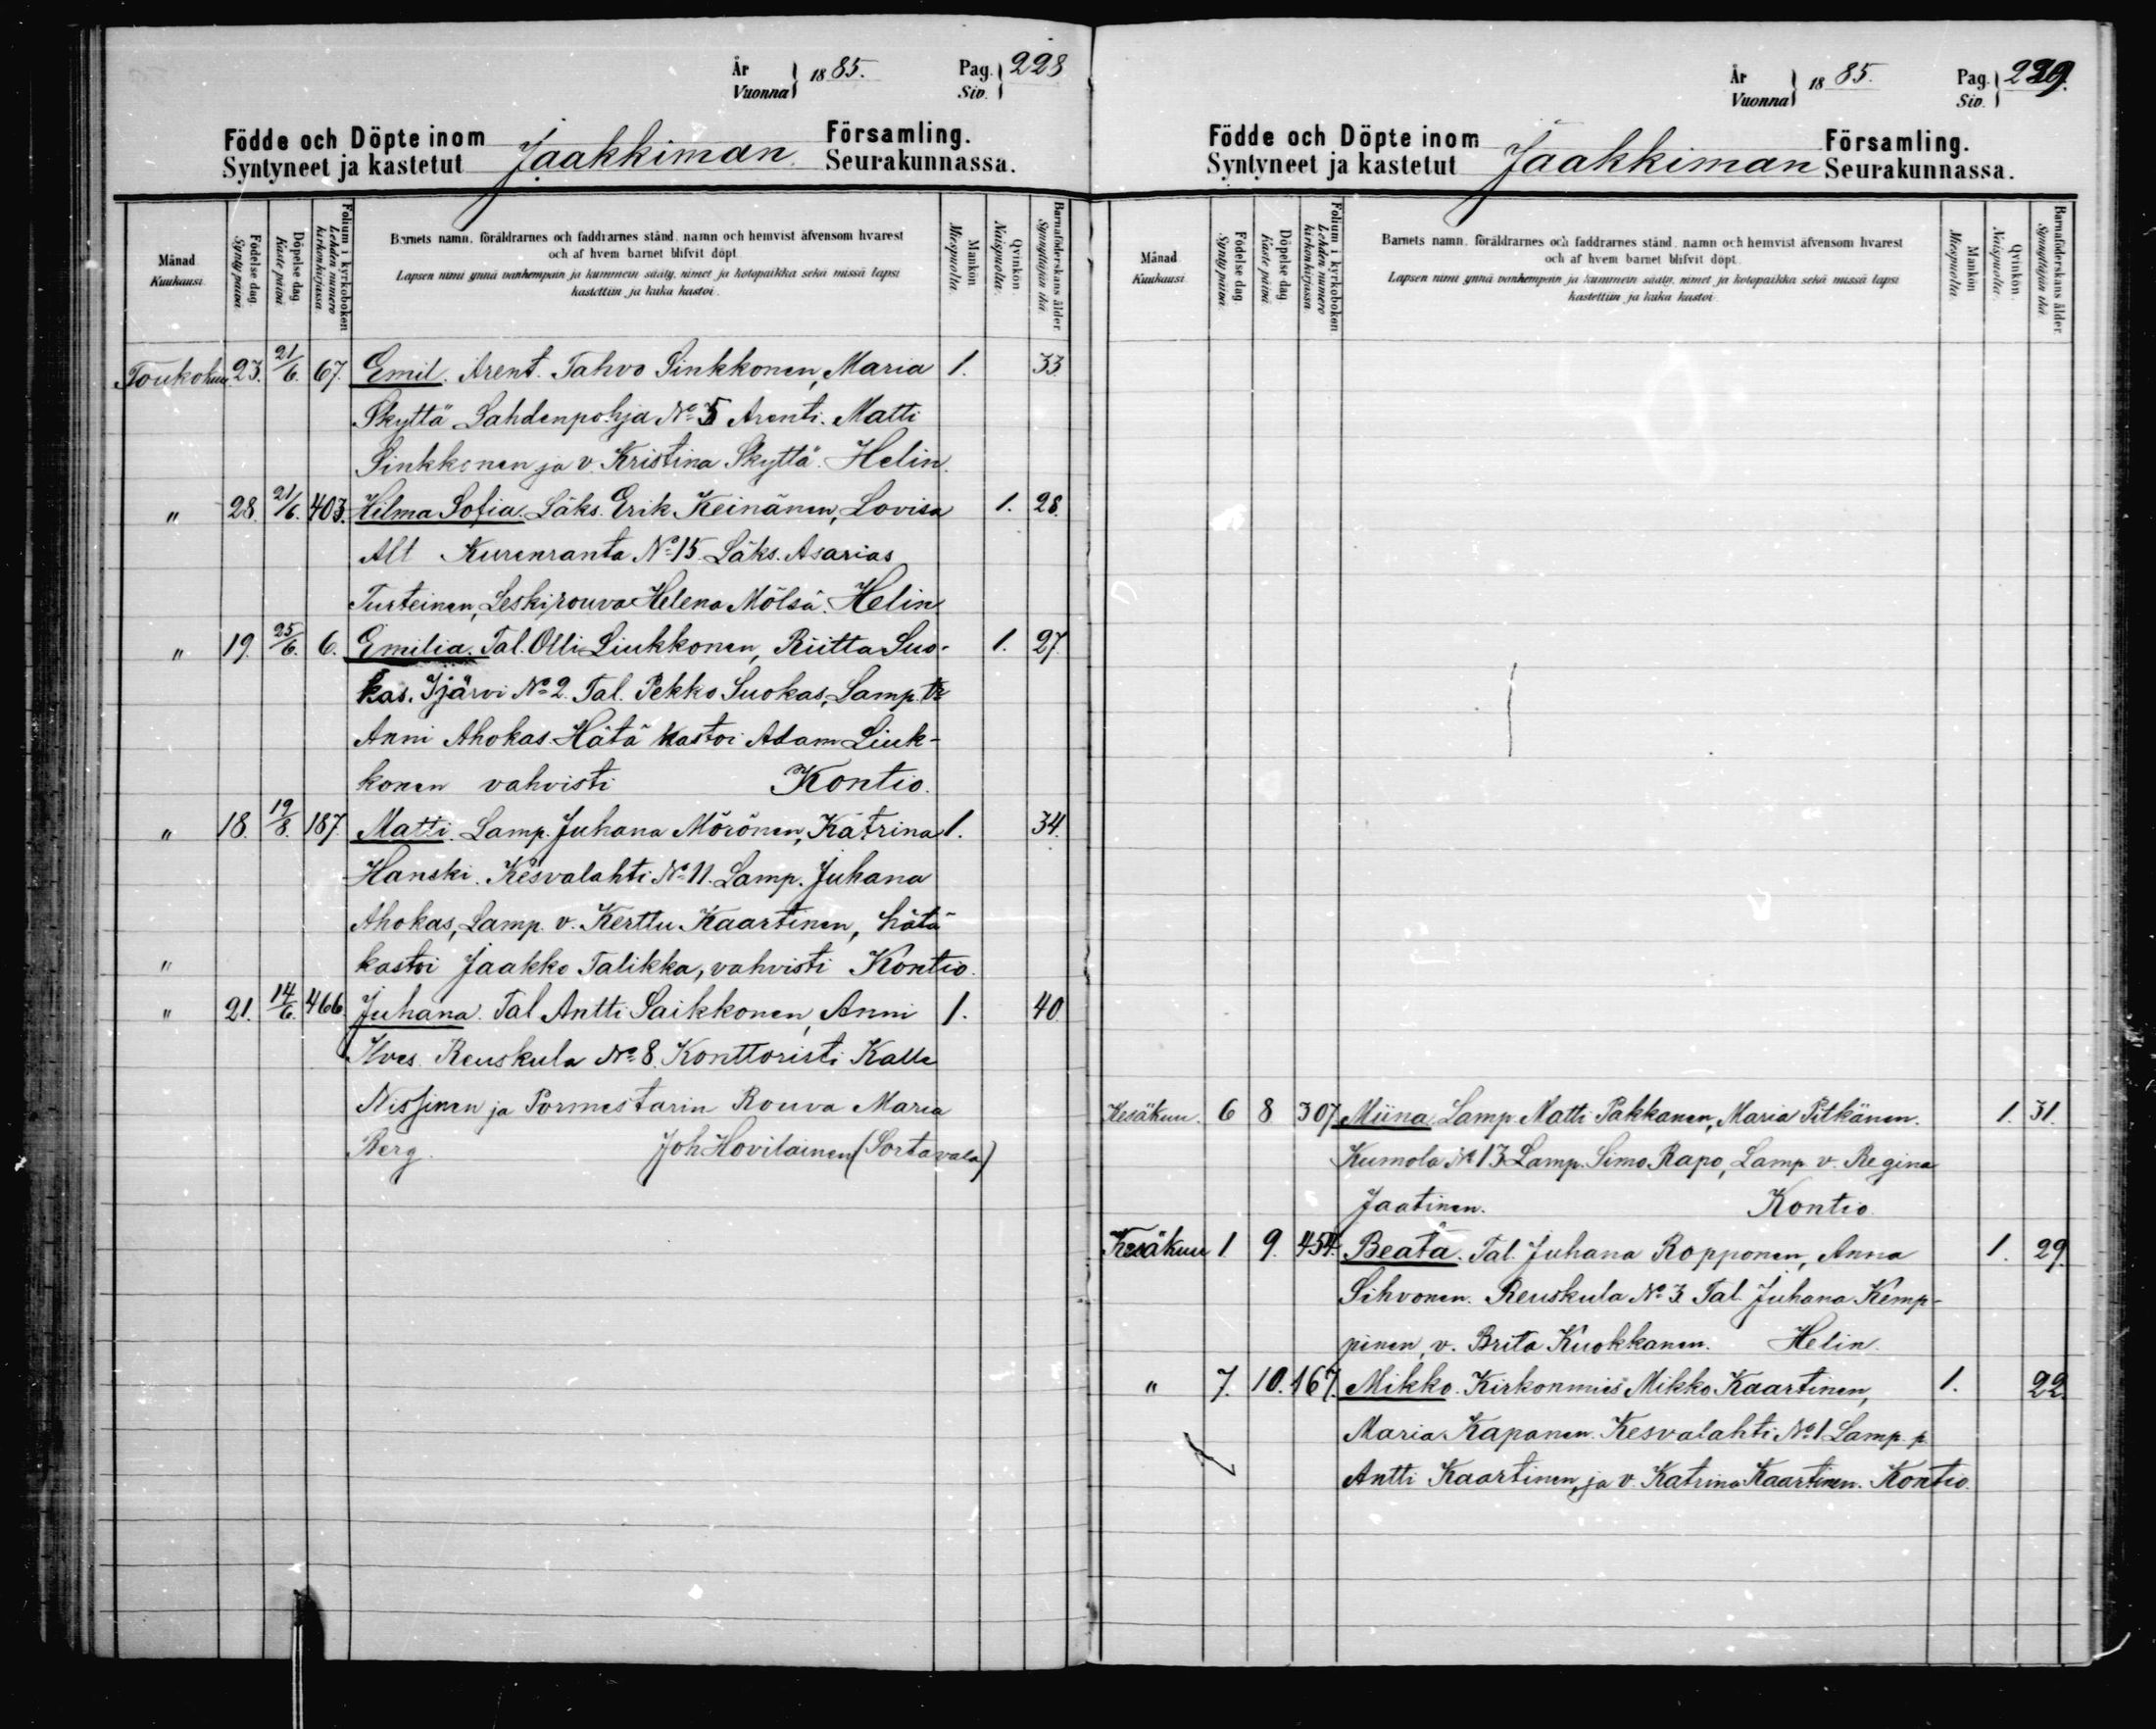 År
Vuonna 1885. Pag. Siv. 228
Födde och Döpte inom Församling.
Syntyneet ja kastetut Jaakkiman Seurakunnassa.
Månad
Kuukausi.
Födelse dag
Synty päivä
Döpelse dag
Kaste päivä
Folium i kyrkoboken
Lehden numero kirkonkirjassa.
Barnets namn, föräldrarnes och faddrarnes stånd, namn och hemvist äfvensom hvarest
och af hvem barnet blifvit döpt
Lapsen nimi ynnä vanhempain ja kummein sääty, nimet ja kotopaikka sekä missä lapsi
kastettiin ja kuka kastoi.
Mankön
Miespuolia.
Qvinkön.
Naispuolia.
Barnaföderskans ålder
Synnyttäjän ikä
Toukokuu 23. 21/6. 67. Emil. Arent. Tahvo Sinkkonen, Maria 1. 33
Skyttä Lahdenpohja No 5 Arenti. Matti
Sinkkonen ja v. Kristina Skyttä. Helin.
" 28. 21/6. 403. Hilma Sofia. Läks. Erik Keinänen, Lovisa 1. 28.
Alt Kurenranta No 15 Läks. Asarias
Turteinen, Leskirouva Helena Mölsä. Helin
" 19. 25/6. 6. Emilia. Tal. Olli Liukkonen, Riitta Suo- 1. 27.
kas. Ijärvi No 2. Tal. Pekko Suokas, Lamp. tr
Anni Ahokas. Hätä kastoi Adam Liuk-
konen vahvisti Kontio.
" 18. 19/8. 187. Matti. Lamp. Juhana Mörönen, Katrina 1. 34.
Hanski. Kesvalahti No 11. Lamp. Juhana
Ahokas, Lamp. v. Kerttu Kaartinen, hätä
" kastoi Jaakko Talikka, vahvisti Kontio.
" 21. 14/6. 466. Juhana. Tal Antti Saikkonen, Anni 1. 40
Ilves. Reuskula No 8. Konttoristi Kalle
Nissinen ja Pormestarin Rouva Maria
Berg. Joh Hovilainen (Sortavala)
År
Vuonna 1885. Pag. Siv. 229.
Födde och Döpte inom Församling.
Syntyneet ja kastetut Jaakkiman Seurakunnassa.
Månad
Kuukausi.
Födelse dag
Synty päivä
Döpelse dag
Kaste päivä
Folium i kyrkoboken
Lehden numero kirkonkirjassa.
Barnets namn, föräldrarnes och faddrarnes stånd, namn och hemvist äfvensom hvarest
och af hvem barnet blifvit döpt.
Lapsen nimi ynnä vanhempain ja kummein sääty, nimet ja kotopaikka sekä missä lapsi
kastettiin ja kuka kastoi.
Mankön
Miespuolia.
Qvinkön.
Naispuolia.
Barnaföderskans ålder
Synnyttäjän ikä
Kesäkuu. 6 8 307 Miina. Lamp. Matti Pakkanen, Maria Pitkänen. 1. 31.
Kumola No 13 Lamp. Simo Rapo, Lamp. v. Regina
Jaatinen. Kontio.
Kesäkuu 1 9. 454. Beata. Tal. Juhana Ropponen, Anna 1. 29.
Sihvonen. Reuskula No 3. Tal. Juhana Kemp-
pinen, v. Brita Kuokkanen. Helin.
" 7. 10. 167. Mikko. Kirkonmies Mikko Kaartinen, 1. 22.
Maria Kaponen. Kesvalahti No 1 Lamp. p.
Antti Kaartinen, ja v. Katrina Kaartinen. Kontio.